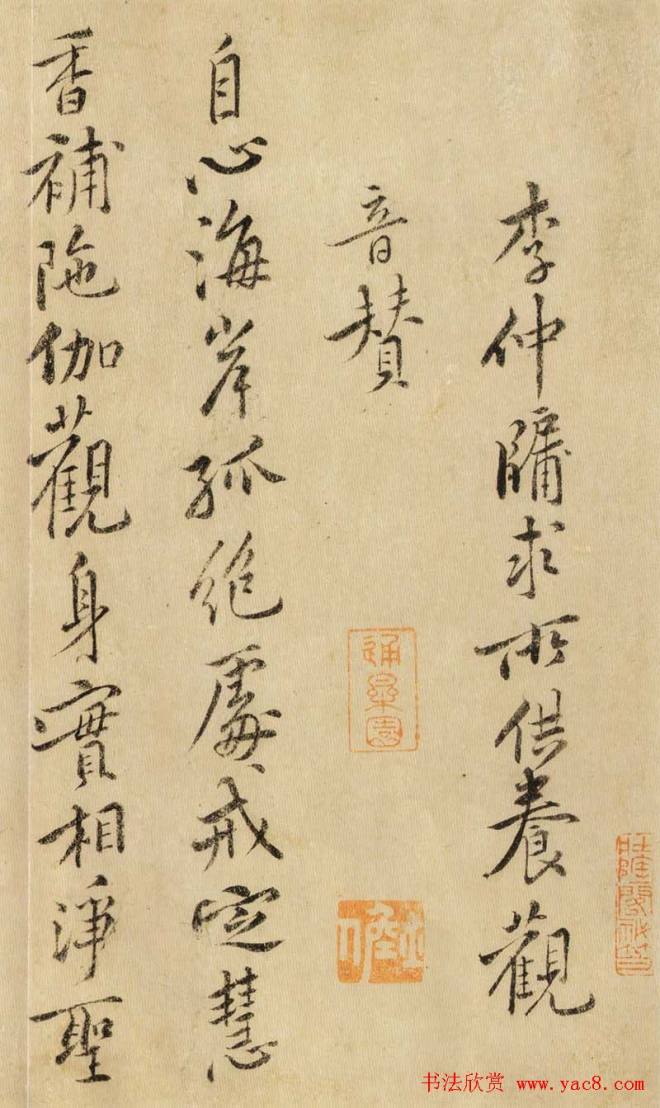 李仲牖求所供養觀
音賛
自心海岸孤絶處戒定慧
香補陁伽觀身實相淨聖
書法欣赏 www.yac8.com